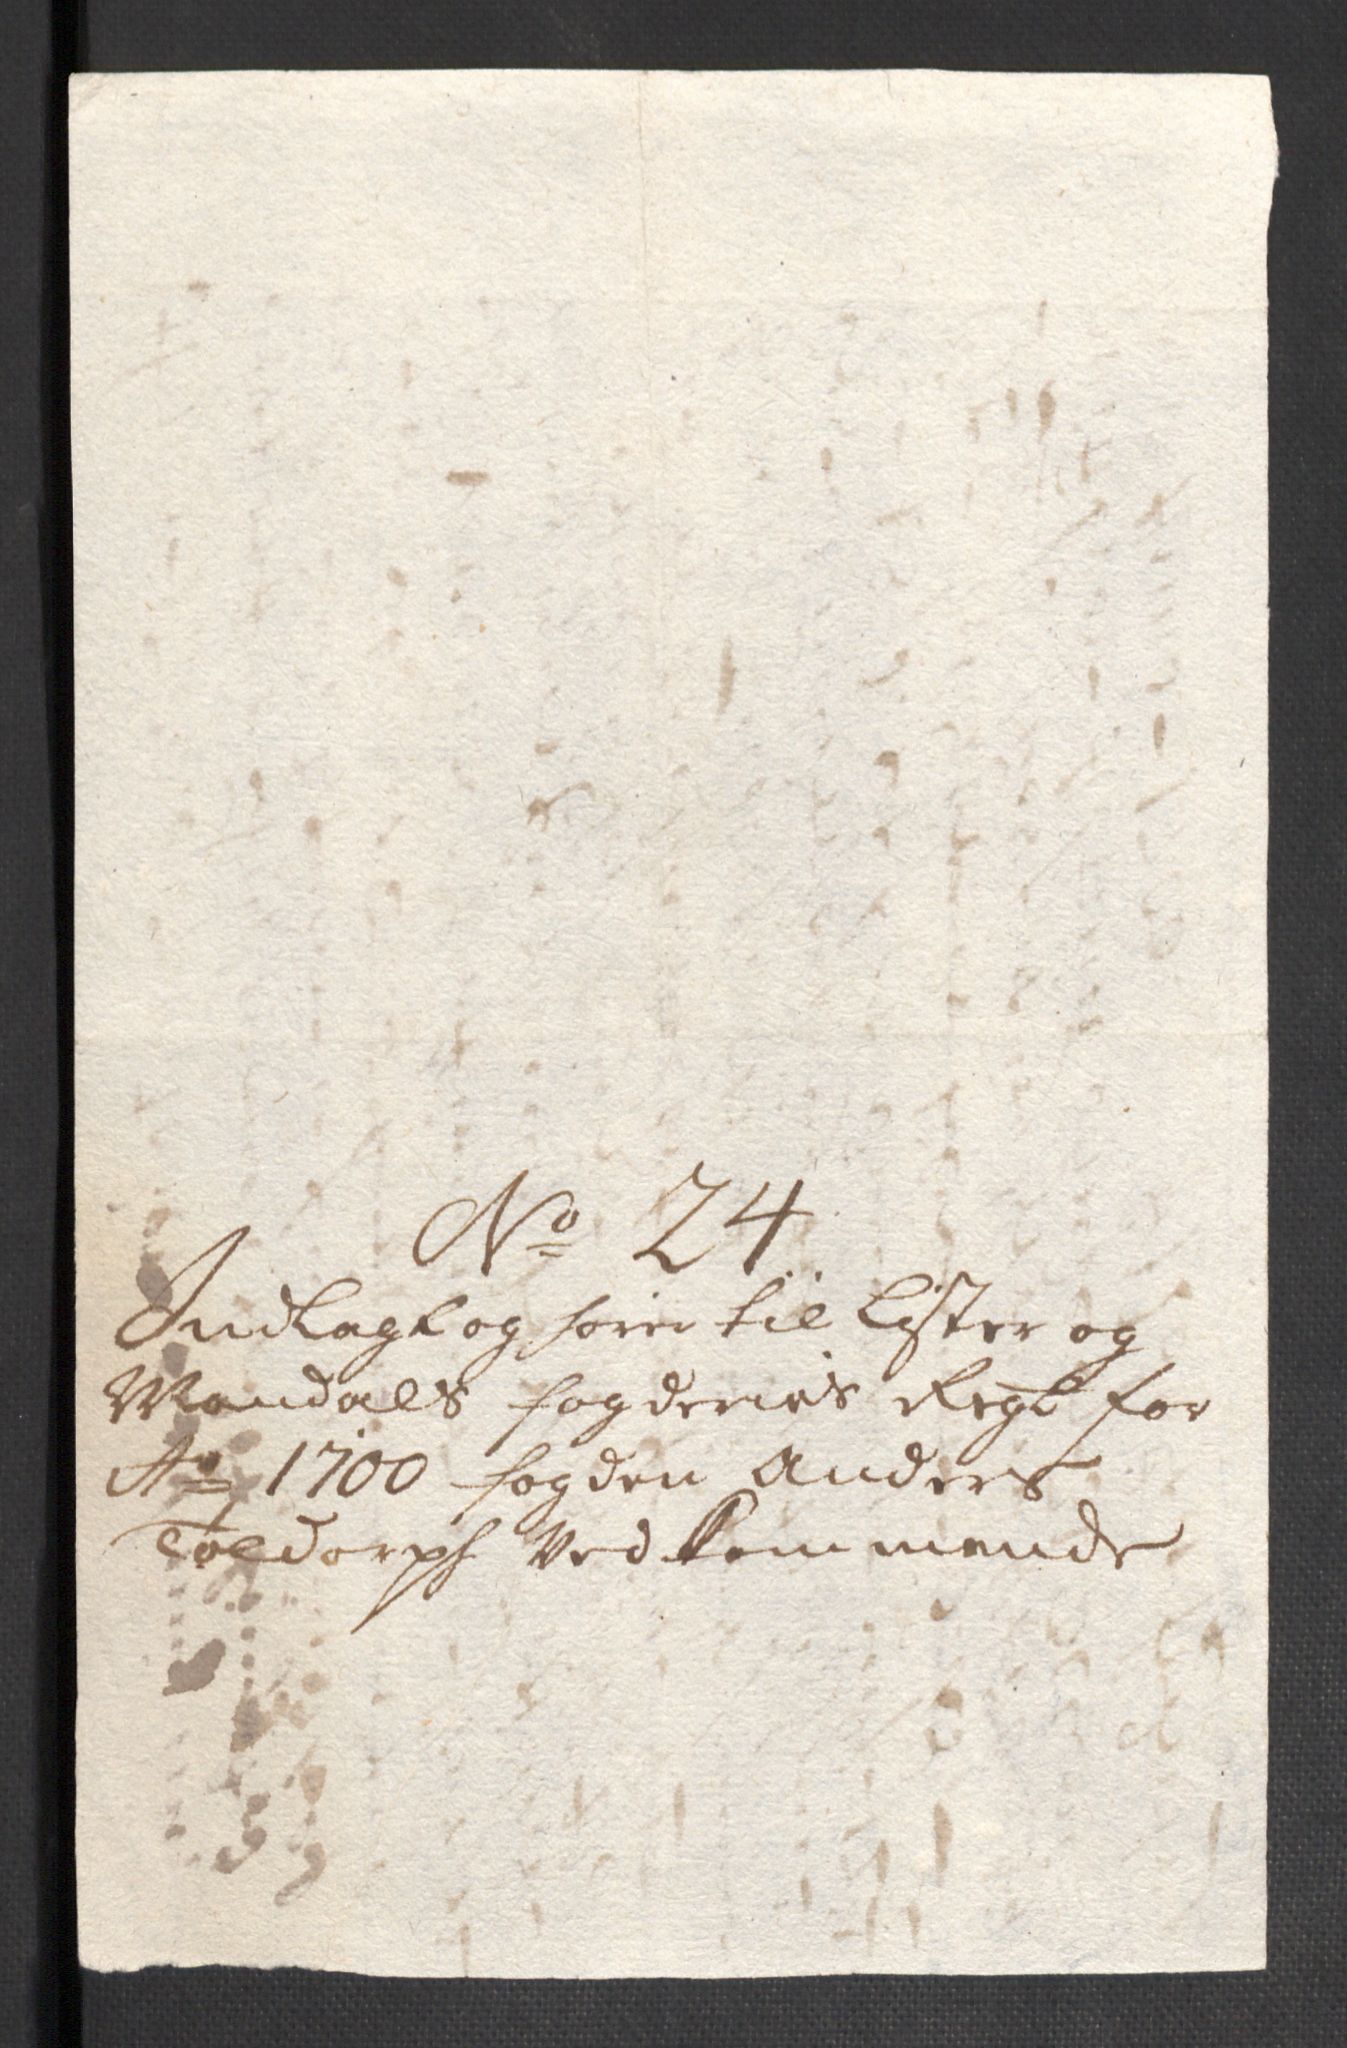 No 24
Indlagt og hører til Lister og
Mandals fogderies Regt for
Ao 1700 fogden Anders
Toldorph Vedkommende